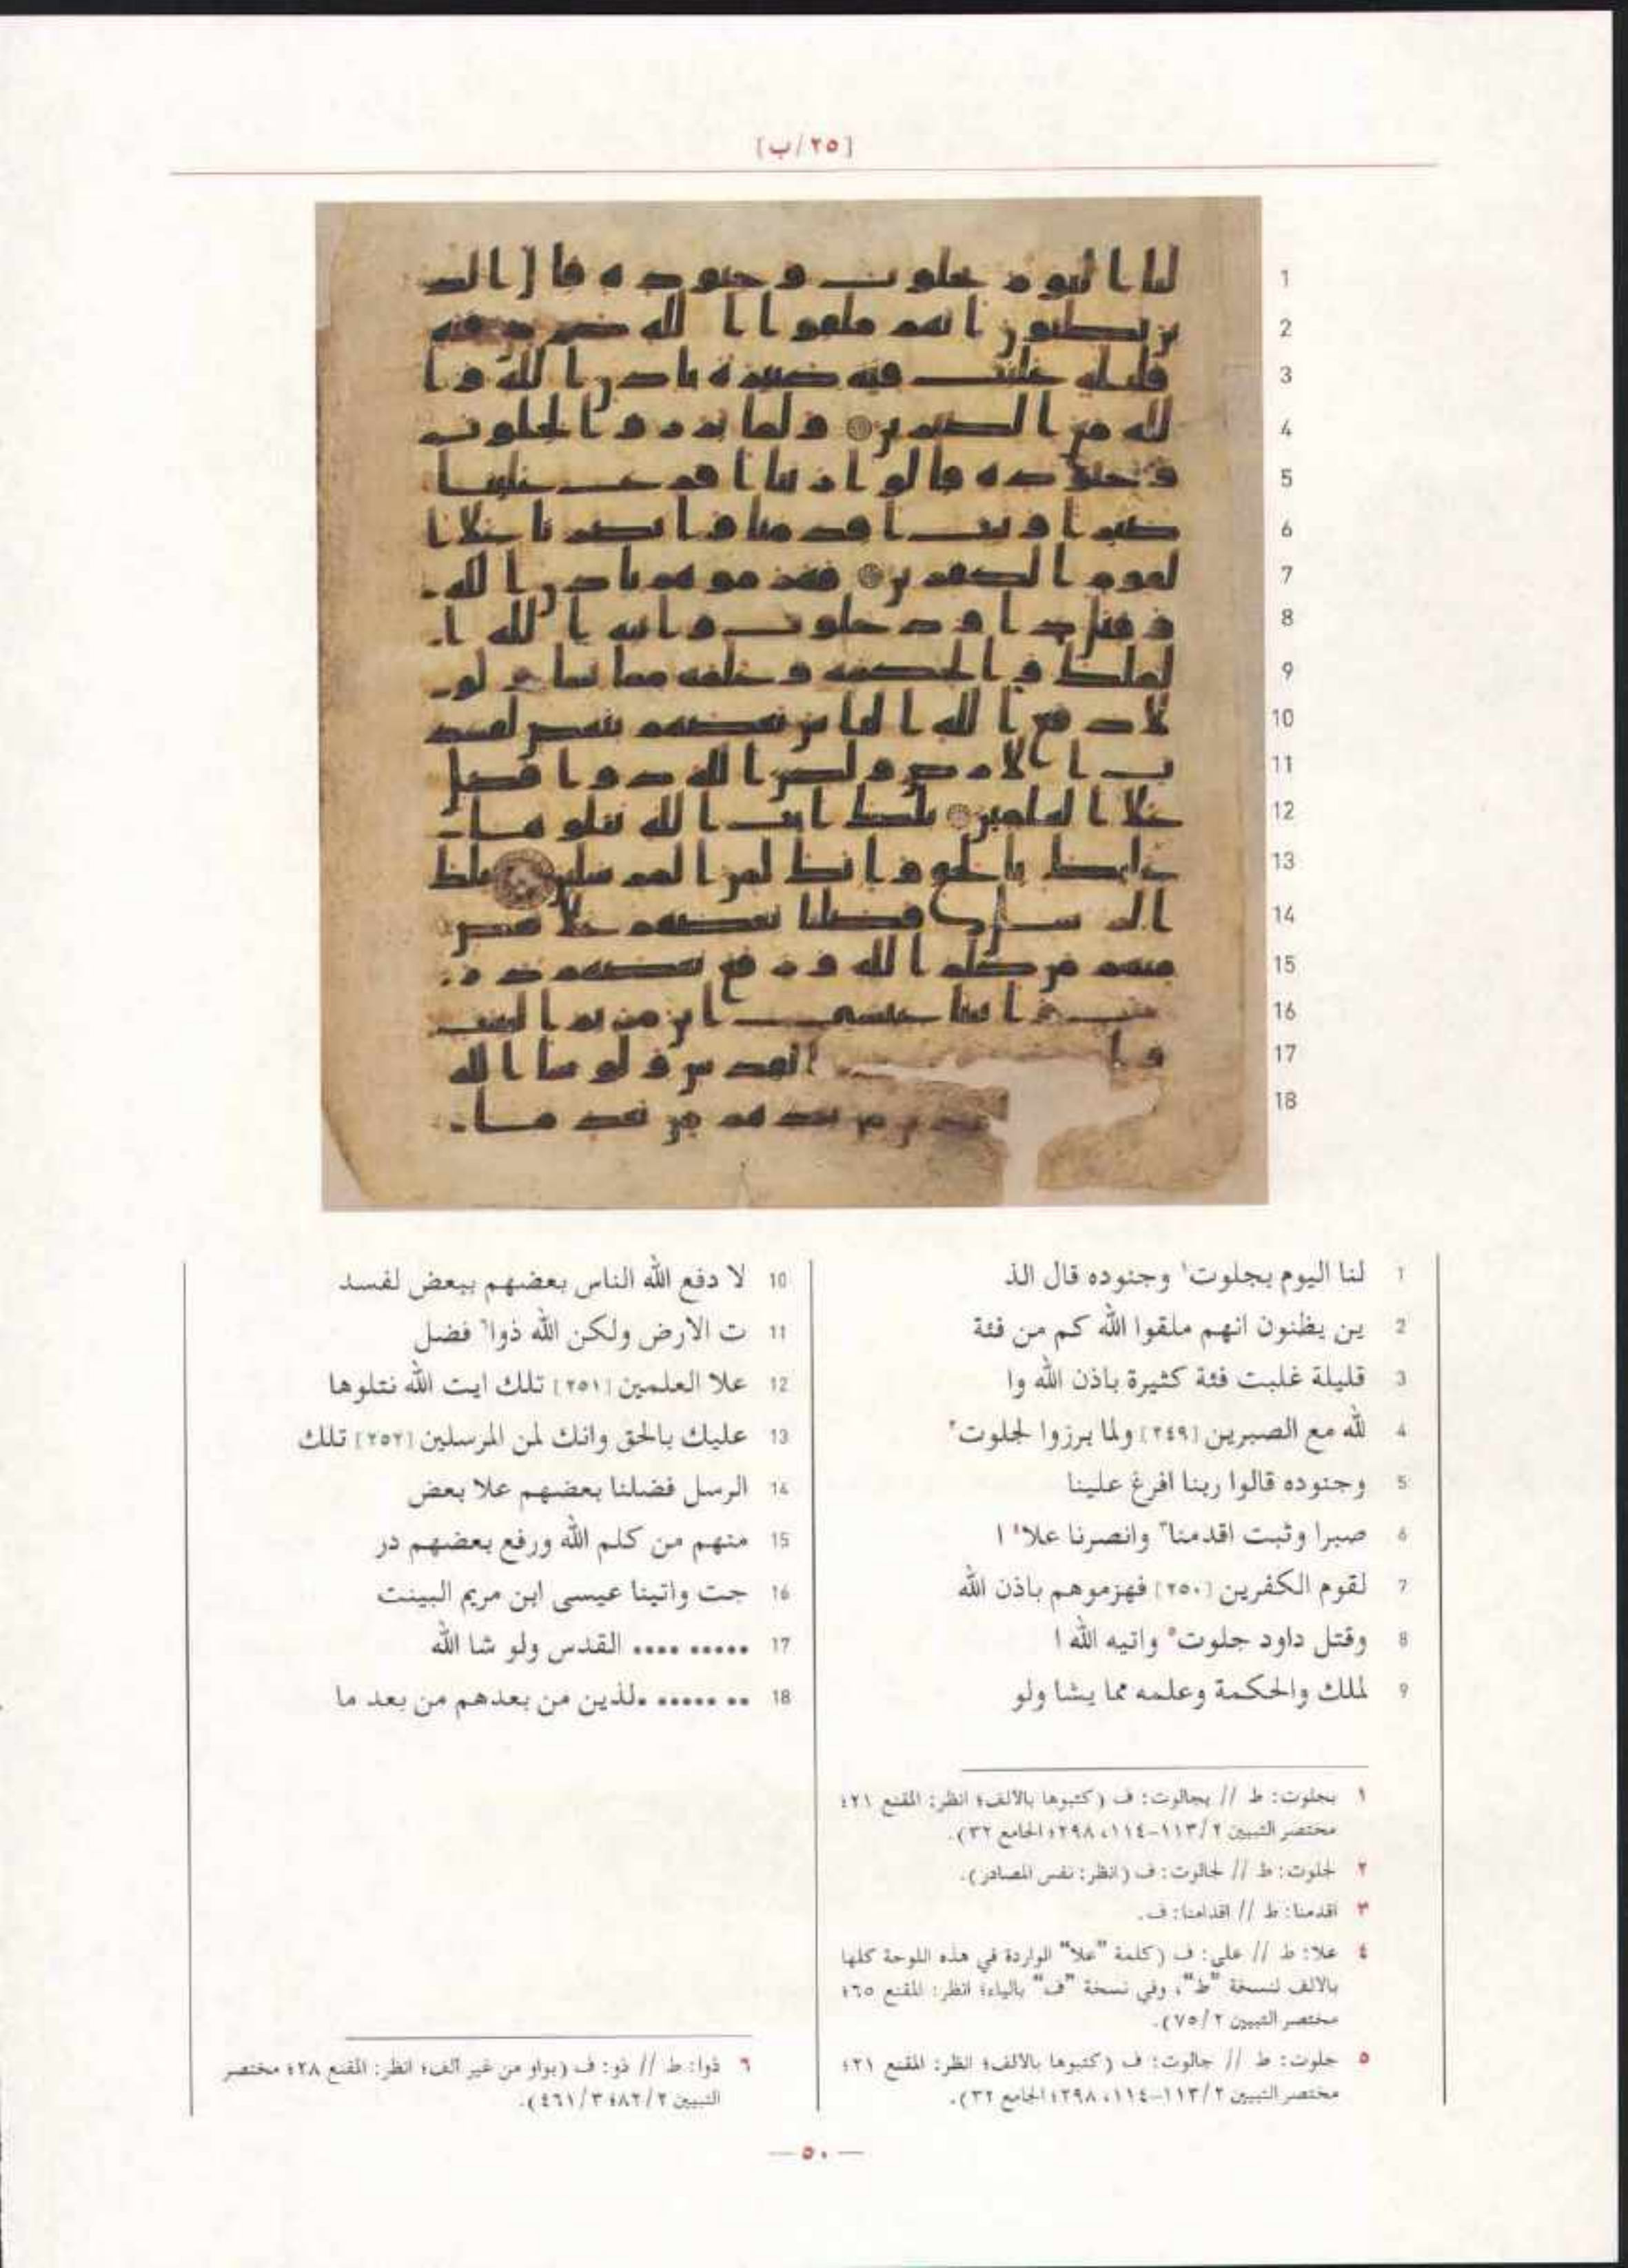 [٢٥/ب]
1 لنا اليوم بجلوت١ وجنوده قال الذ
2 ين يظنون انهم ملقوا الله كم من فئة
3 قليلة غلبت فئة كثيرة باذن الله وا
4 لله مع الصبرين [٢٤٩] ولما برزوا لجلوت٢
5 وجنوده قالوا ربنا افرغ علينا
6 صبرا وثبت اقدمنا٣ وانصرنا علا٤ ا
7 لقوم الكفرين [٢٥٠] فهزموهم باذن الله
8 وقتل داود جلوت٥ واتيه الله ا
9 لملك والحكمة وعلمه مما يشا ولو
10 لا دفع الله الناس بعضهم ببعض لفسد
11 ت الارض ولكن الله ذوا٦ فضل
12 علا العلمين [٢٥١] تلك ايت الله نتلوها
13 عليك بالحق وانك لمن المرسلين [٢٥٢] تلك
14 الرسل فضلنا بعضهم علا بعض
15 منهم من كلم الله ورفع بعضهم در
16 جت واتينا عيسى ابن مريم البينت
17 ..... .... القدس ولو شا الله
18 .. ...... .لذين من بعدهم من بعد ما
١ بجلوت: ط // بجالوت: ف (كتبوها بالالف؛ انظر: المقنع ٢١؛
مختصر التبيين ٢/١١٣-١١٤، ٢٩٨؛ الجامع ٣٢).
٢ لجلوت: ط // لجالوت: ف (انظر: نفس المصادر).
٣ اقدمنا: ط // اقدامنا: ف.
٤ علا: ط // على: ف (كلمة "علا" الواردة في هذه اللوحة كلها
بالالف لنسخة "ط"، وفي نسخة "ف" بالياء؛ انظر: المقنع ٦٥؛
مختصر التبيين ٢/٧٥).
٥ جلوت: ط // جالوت: ف (كتبوها بالالف؛ انظر: المقنع ٢١؛
مختصر التبيين ٢/١١٣-١١٤، ٢٩٨؛ الجامع ٣٢).
٦ ذوا: ط // ذو: ف (بواو من غير ألف؛ انظر: المقنع ٢٨؛ مختصر
التبيين ٢/٨٢؛ ٣/٤٦١).
— ٥٠ —